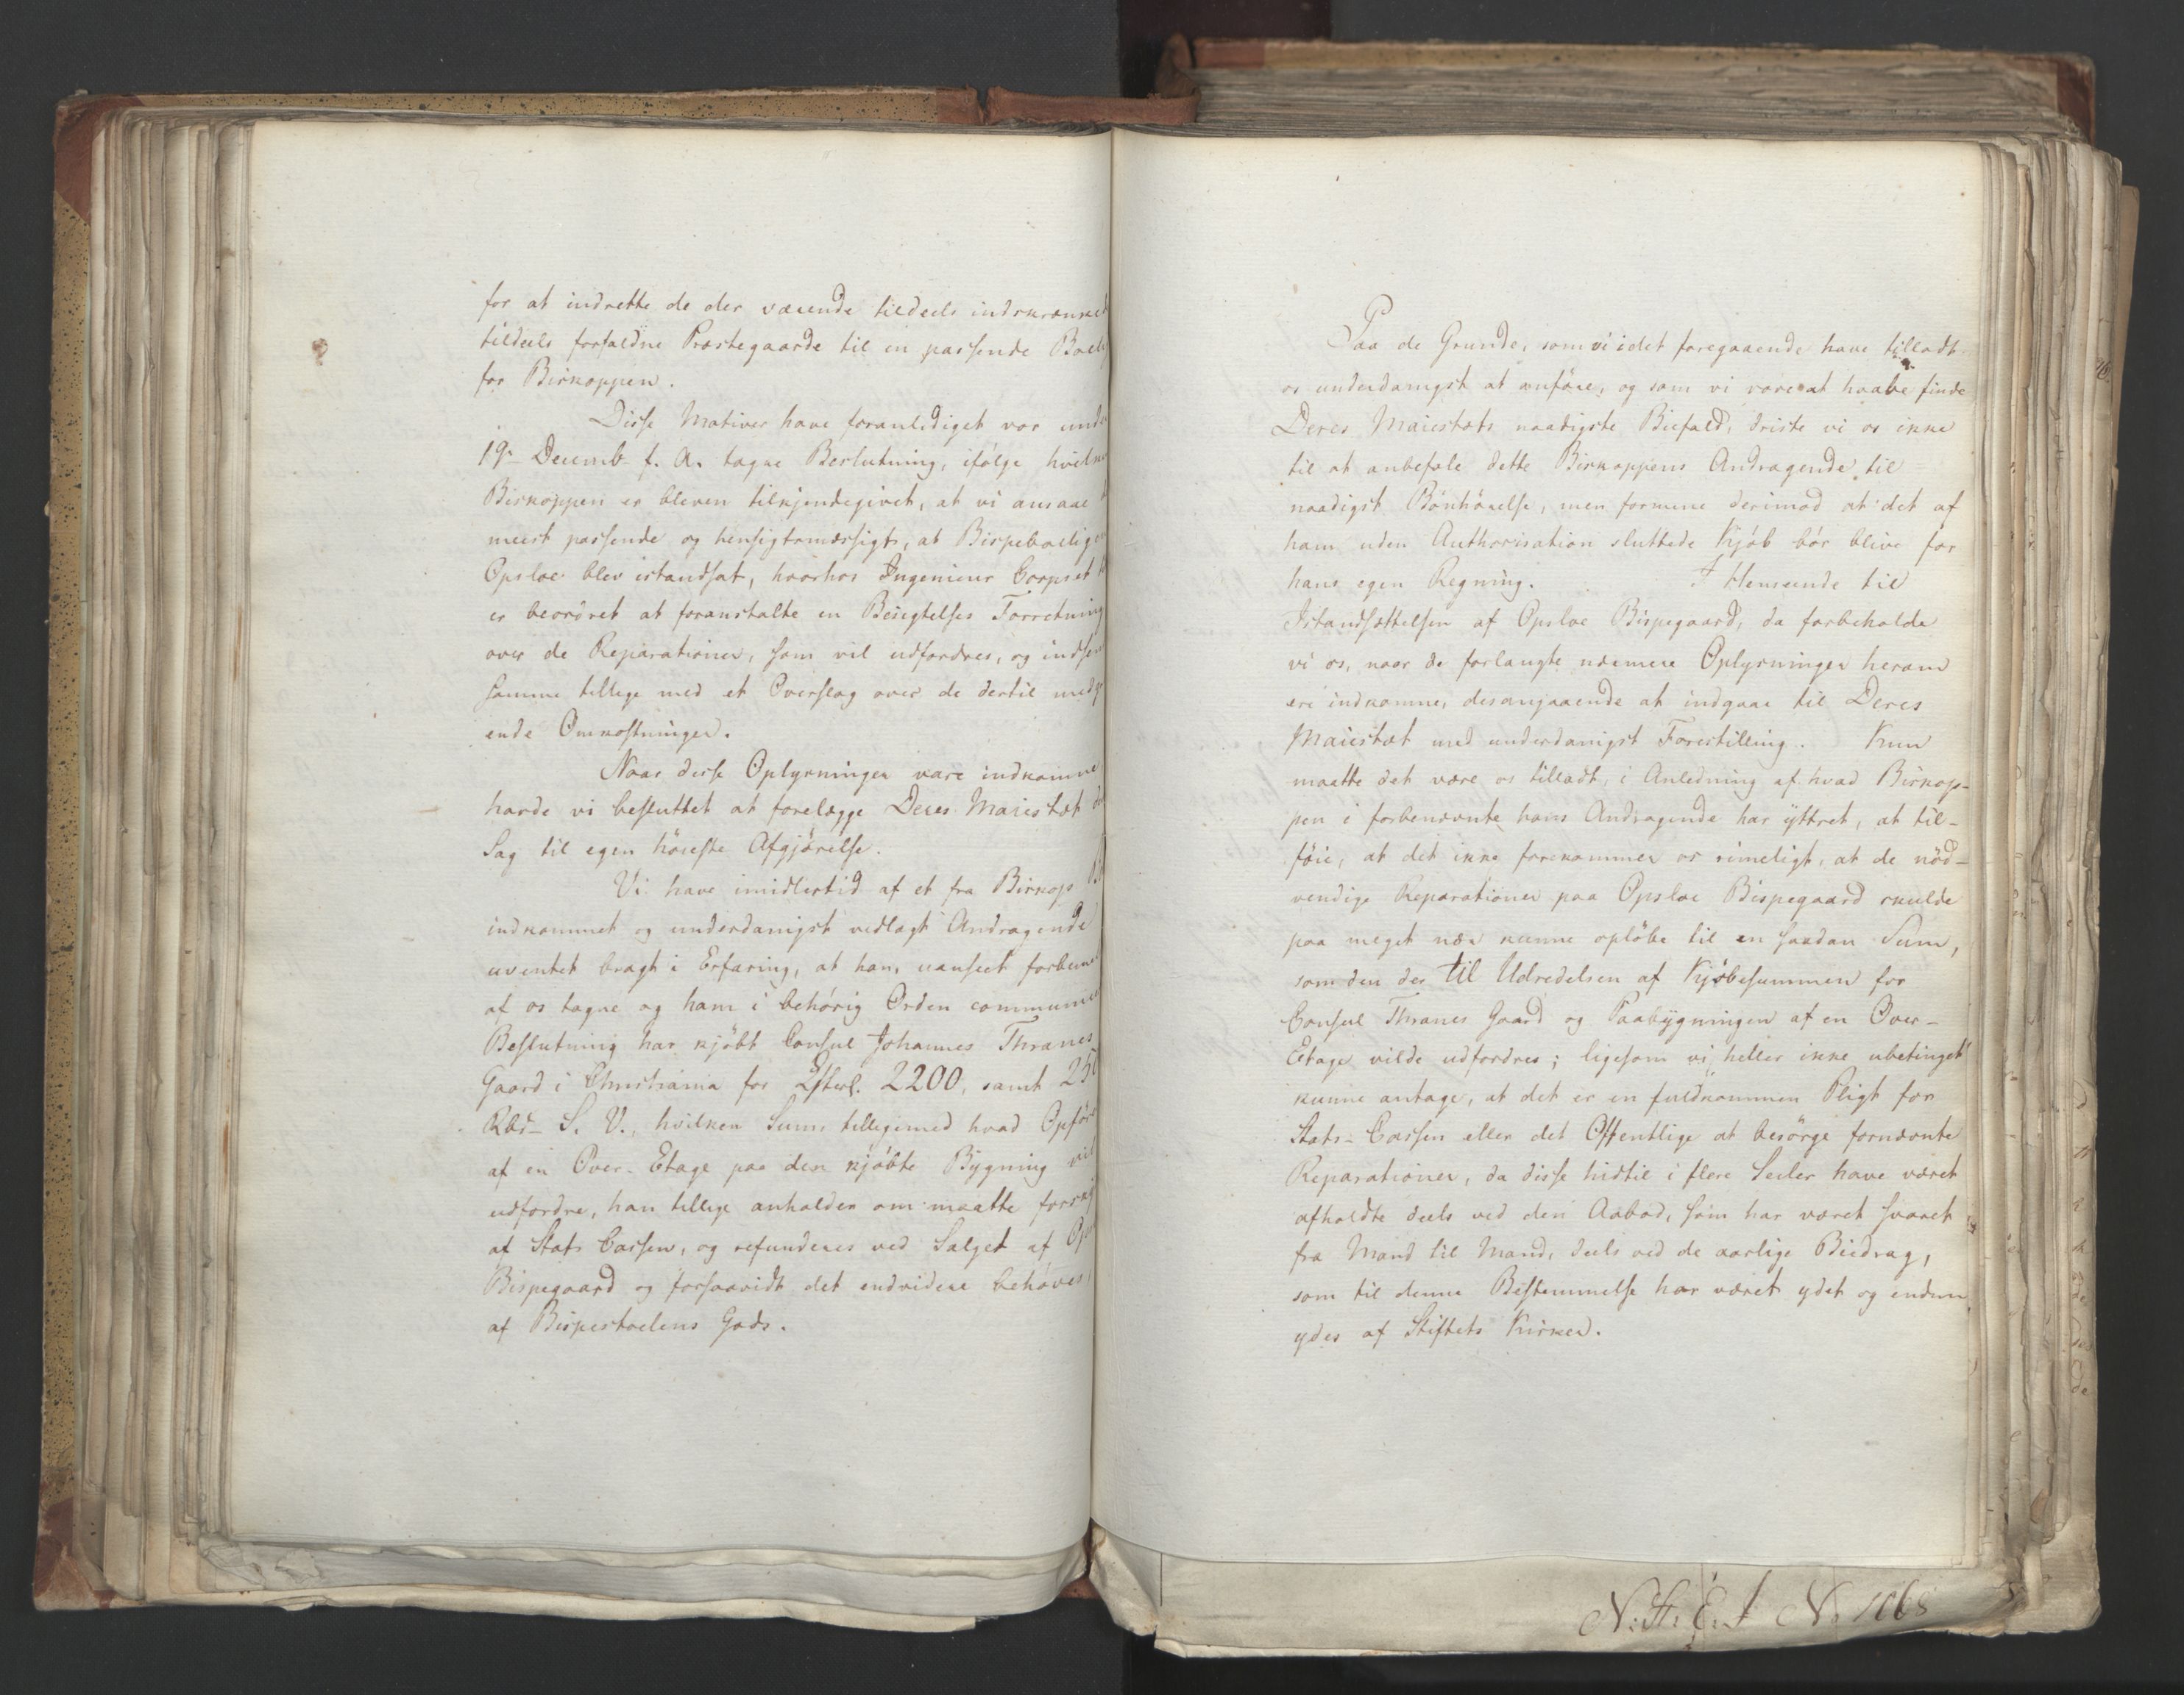 for at indrette de der værende tildeels indskrænkede
tildeels forfaldne Præstegaarde til en passende
for Biskoppen.
Disse Motiver have foranlediget vor
19de Decemb. f. A. tagne Beslutning, ifølge
Biskoppen er bleven tilkjendegivet, at vi ansaae
meest passende og hensigtsmæssigt, at
Opsloe blev istandsat, hvorhos Ingenieur Corpset
er beordret at foranstalte en Besigtelses Forretning
over de Reparationer, som vil udfordres, og
samme tillige med et Overslag over de dertil
ende Omkostninger.
Naar disse Oplysninger vare indkomne
havde vi besluttet at forelægge Deres Majestæt
Sag til egen höieste Afgjörelse.
Vi have imidlertid af et fra Biskop
indkommet og underdanigst vedlagt Andragende
uventet bragt i Erfaring, at han, uanseet
af os tagne og ham i behörig Orden
Beslutning har kjöbt Consul Johannes Thranes
Gaard i Christiania for £ Sterl. 2200, samt 250
Rbd. S. V., hvilken Sum, tilligemed hvad
af en Over-Etage paa den kjöbte Bygning vil
udfordre, han tillige anholder om maatte
af Stats Cassen, og refunderes ved Salget af
Bispegaard og forsaavidt det endvidere behöves
af Bispestoelens Gods.
Paa de Grunde, som vi i det foregaaende have tilladt
os underdanigst at anföre, og som vi vove at haabe finde
Deres Majestæts naadigste Biefald, driste vi os ikke
til at anbefale dette Biskoppens Andragende til
naadigst Bönhörelse, men formene derimod at det af
ham uden Authorisation sluttede Kjöb bör blive for
hans egen Regning. I Henseende til
Istandsættelsen af Opsloe Bispegaard, da forbeholde
vi os, naar de forlangte nærmere Oplysninger herom
ere indkomne, desangaaende at indgaae til Deres
Majestæt med underdanigst Forestilling. Kun
maatte det være os tilladt, i Anledning af hvad Biskop-
pen i forbenævnte hans Andragende har yttret, at til-
föie, at det ikke forekommer os rimeligt, at de nöd-
vendige Reparationer paa Opsloe Bispegaard skulde
paa meget nær kunne oplöbe til en saadan Sum,
som den der til Udredelsen af Kjöbesummen for
Consul Thranes Gaard og Paabygningen af en Over-
Etage vilde udfordres; ligesom vi heller ikke ubetinget
kunne antage, at det er en fuldkommen Pligt for
Stats-Cassen eller det Offentlige at besörge fornævnte
Reparationer, da disse hidtil i flere Seculer have været
afholdte deels ved den Aabod, som har været svaret
fra Mand til Mand, deels ved de aarlige Biedrag,
som til denne Bestemmelse har været ydet og endnu
ydes af Stiftets Kirker.